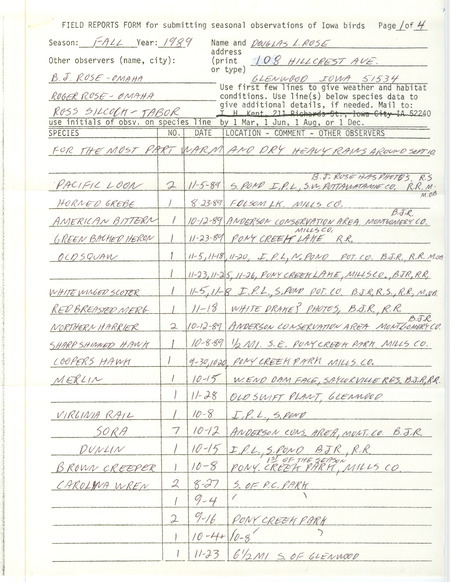 FIELD REPORTS FORM for submitting seasonal observations of Iowa birds Page 1 of 4
Season: FALL Year: 1989 Name and DOUGLAS L. ROSE
address
Other observers (name, city): (print 108 HILLCREST AVE.
or type)
B.J. ROSE - OMAHA GLENWOOD IOWA 51534
ROGER ROSE - OMAHA Use first few lines to give weather and habitat
conditions. Use line(s) below species data to
give additional details, if needed. Mail to:
ROSS SILCOCK - TABOR T. H. Kent, 211 Richards St., Iowa City IA 52240
use initials of obsv. on species line by 1 Mar, 1 Jun, 1 Aug, or 1 Dec.
SPECIES NO. DATE LOCATION - COMMENT - OTHER OBSERVERS
FOR THE MOST PART WARM AND DRY HEAVY RAINS AROUND SEPT 10
B.J. ROSE HAS PHOTOS, R.S
PACIFIC LOON 2 11-5-89 S. POND I.P.L, S.W. POTTAWATAMIE CO. R.R. M.OB
HORNED GREBE 1 8-23-89 FOLSOM LK. MILLS CO.
B.J.R.
AMERICAN BITTERN 1 10-12-89 ANDERSON CONSERVATION AREA MONTGOMERY CO.
MILLS CO.
GREEN BACKED HERON 1 11-23-89 PONY CREEK LAKE R.R.
OLDSQUAW 1 11-5, 11-18, 11-20, I.P.L, N. POND POT. CO. B.J.R, R.R. M.OB
11-23, 11-25, 11-26, PONY CREEK LAKE, MILLS CO., BJR, RR
WHITE WINGED SCOTER 1 11-5, 11-8 I.P.L, S. POND POT. CO. B.J.R, R.S., R.R, M.OB
RED BREASTED MERG. 1 11-18 WHITE DRAKE? PHOTOS, BJR, R.R
B.J.R.
NORTHERN HARRIER 2 10-12-89 ANDERSON CONSERVATION AREA MONTGOMERY CO.
SHARP SHINNED HAWK 1 10-8-89 1/2 MI. S.E. PONY CREEK PARK MILLS CO.
COOPERS HAWK 1 9-30, 10-20, PONY CREEK PARK MILLS CO.
MERLIN 1 10-15 W. END DAM FACE, SAYLORVILLE RES. BJR, RR.
1 11-28 OLD SWIFT PLANT, GLENWOOD
VIRGINIA RAIL 1 10-8 I.P.L., S. POND
SORA 7 10-12 ANDERSON CONS. AREA, MONT. CO. B.J.R.
DUNLIN 1 10-15 I.P.L, S. POND BJR, R.R
1ST OF THE SEASON
BROWN CREEPER 1 10-8 PONY CREEK PARK, MILLS CO.
CAROLINA WREN 2 8-27 S. OF P.C. PARK
1 9-4 " "
2 9-16 PONY CREEK PARK
1 10-4+10-8 " "
1 11-23 6 1/2 MI S. OF GLENWOOD